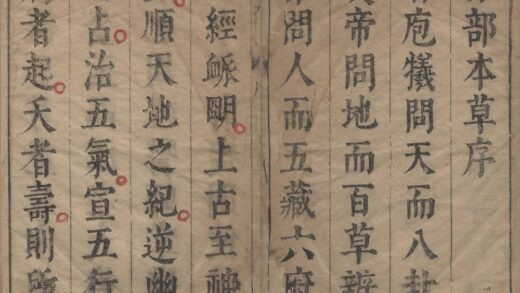 部本草序
庖犧問天而八卦
帝問地而百草辨
問人而五藏六府
經衇眀上古至神
順天地之紀逆幽
占治五氣宣五行
者起夭者壽則所